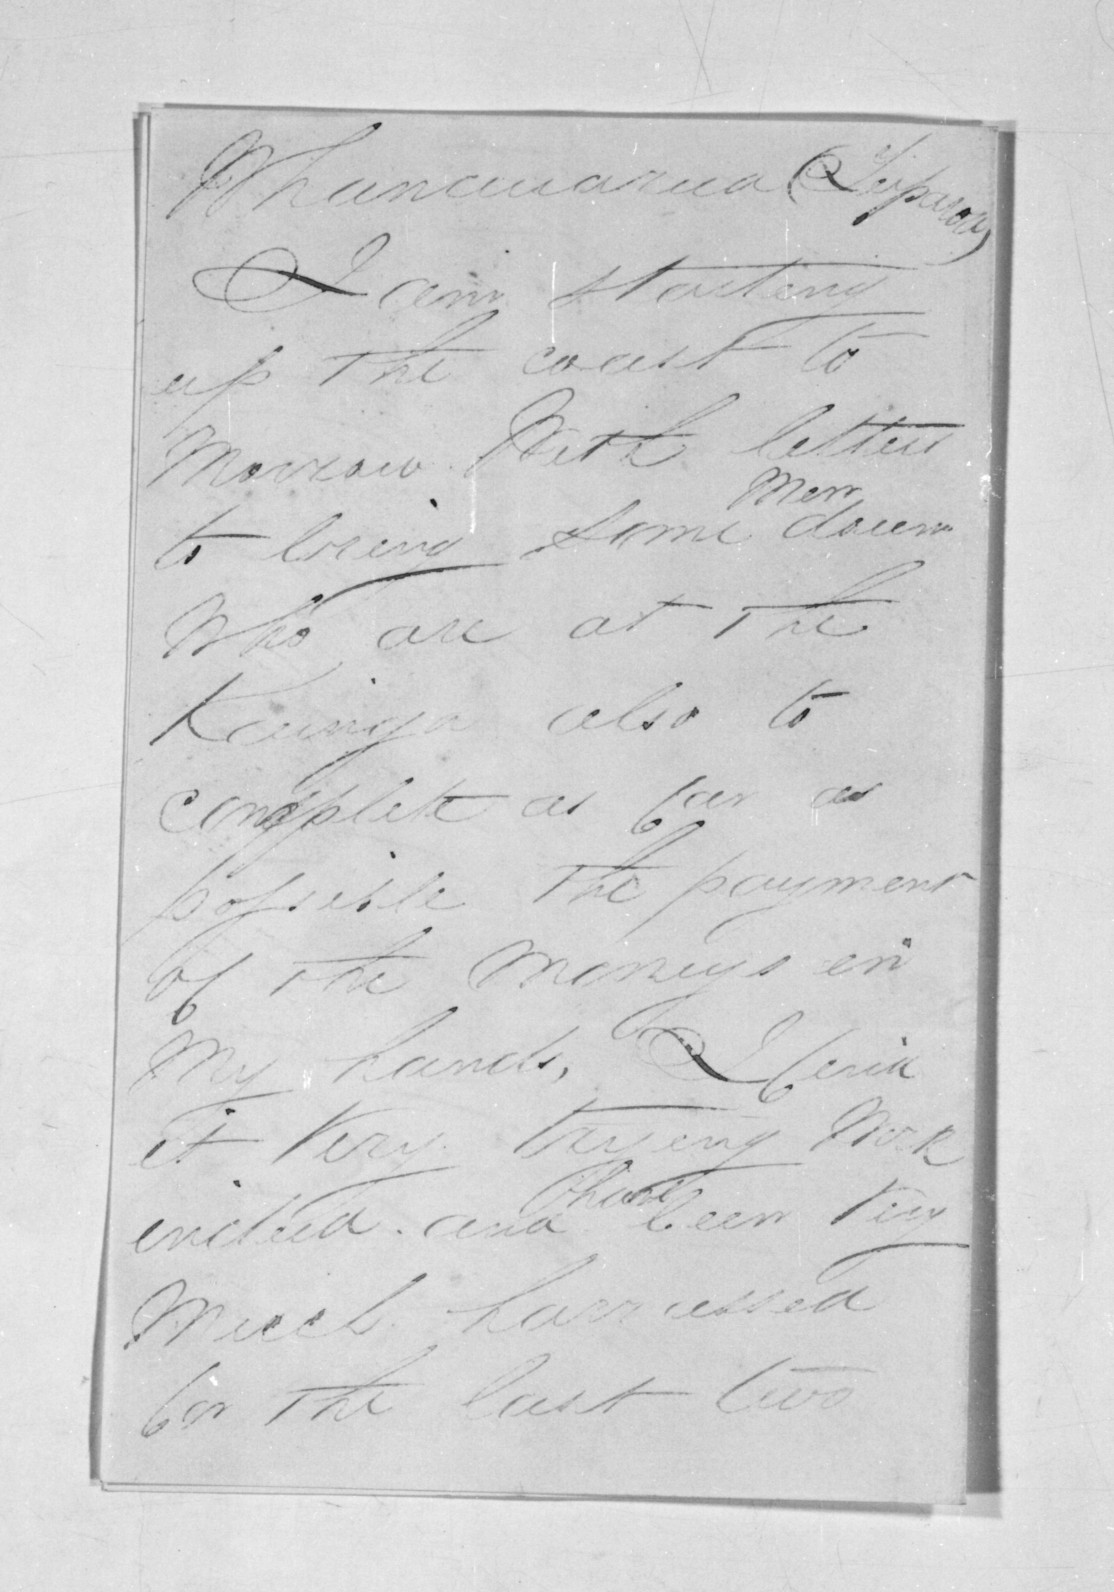 Whanauarua (Tiparoa)
I am starting
up the coast to
Morrow. With letters
to bring some men down
Who are at the
Kainga also to
complete as far as
possible the payment
of the moneys in
My hands, I find
it Very trying Work
indeed. and have been Very
Much harrassed
for the last two